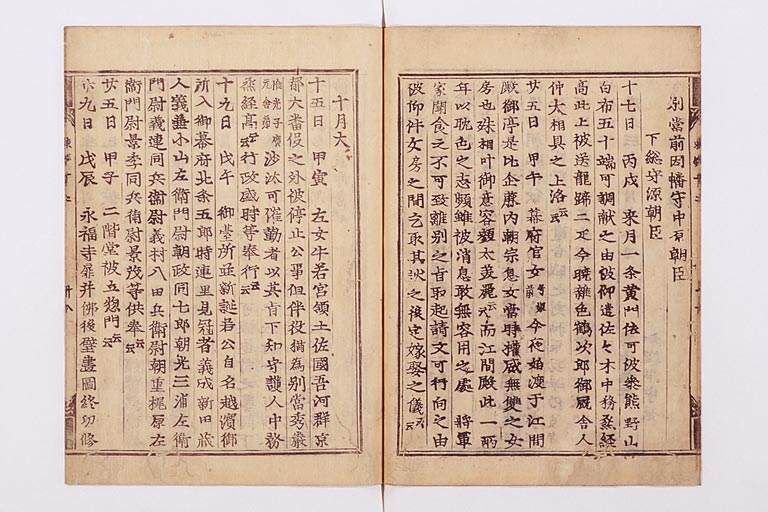 別當前因幡守中原朝臣
下総守源朝臣
十七日 丙戌 來月一条黄門依可被參熊野山
白布五十端可調献之由被仰遣佐々木中務丞経
高此上被送龍蹄二疋今曉雜色鶴次郎御厩舎人
仲太相具之上洛云云
廿五日 甲午 幕府官女 今夜始渡于江間
殿御亭是比企藤内朝宗息女當時權威無雙之女
房也殊相叶御意容顔太美麗云云而江間殿此一兩
年以耽色之志頻雖被消息敢無容用之處 將軍
家聞食之不可致離別之旨取起請文可行向之由
被仰件女房之間乞取其状之後定嫁娶之儀云云
十月大
十五日 甲寅 左女牛若宮領土佐國吾河郡京
都大番役之外被停止公事但伴役猶為別當秀嚴
沙汰可催勤者以其旨下知守護人中務
丞経高云云行政盛時等奉行云云
十九日 戊午 御臺所並新誕若公自名越濱御
所入御幕府北条五郎時連里見冠者義成新田蔵
人義兼小山左衛門尉朝政同七郎朝光三浦左衛
門尉義連同兵衛尉義村八田兵衛尉朝重梶原左
衛門尉景季同兵衛尉景茂等供奉云云
廿五日 甲子 二階堂被立惣門云云
廿九日 戊辰 永福寺扉并佛後壁畫圖終功修